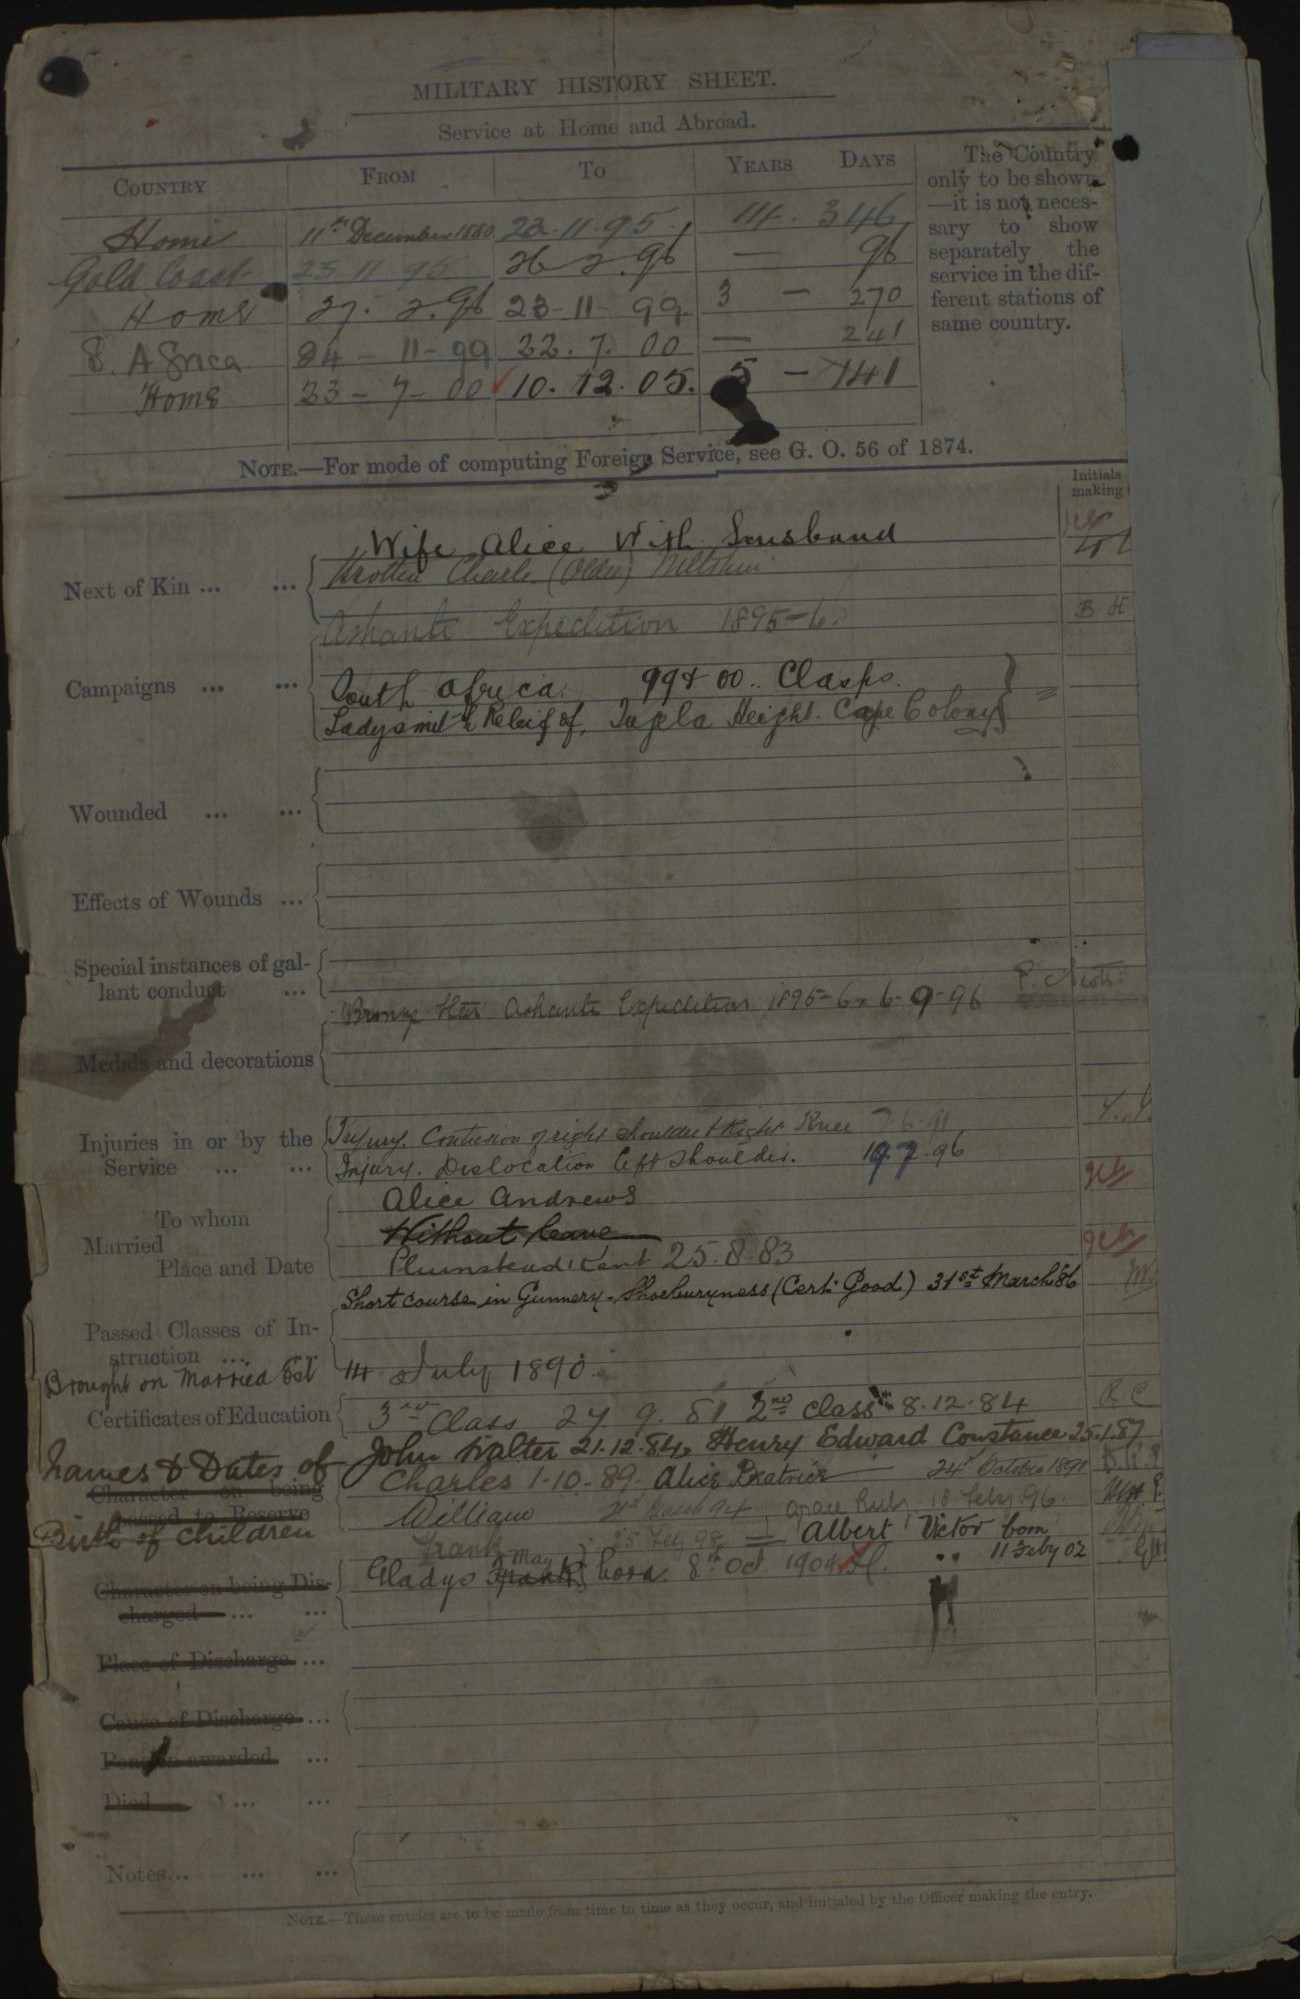 MILITARY HISTORY SHEET.
Service at Home and Abroad.
COUNTRY FROM TO YEARS DAYS
The Country only to be shown
—it is not necessary to show separately the service in the different stations of same country.
Home 11th December 1880 22.11.95. 14. 346
Gold Coast 23.11.95 26 2.96 — 96
Home 27. 2.96 23-11-99 3 — 270
S. Africa 24-11-99 22.7.00 — 241
Home 23-7-00 10.12.05. 5 — 141
NOTE.—For mode of computing Foreign Service, see G. O. 56 of 1874.
Initials
making
Wife Alice With Husband
Next of Kin ... ... Brother Charles
Ashanti Expedition 1895-6. B. H
Campaigns ... ... South Africa. 99 & 00.. Clasps.
Ladysmith Releif of, Tugela Height. Cape Colony
Wounded ... ...
Effects of Wounds ...
Special instances of gal-
lant conduct ...
Bronze Star Ashanti Expedition 1895-6. 6-9-96
Medals and decorations
Injuries in or by the Injury. Contusion of right shoulder & Right Knee 7.6.91
Service ... ... Injury. Dislocation left shoulder. 19.7.96
To whom Alice Andrews
Married Without leave
Place and Date Plumstead Kent 25.8.83
Short course in Gunnery - Shoeburyness (Cert. Good) 31st March 86
Passed Classes of In-
struction ... ...
Brought on Married Est 14 July 1890.
Certificates of Education 3rd Class 27 9. 81 2nd class 8.12.84 R C
Names & Dates of John Walter 21.12.84, Henry Edward Constance 25.1.87
Character on being Charles 1-10-89. Alice Beatrice 24th October 1891
passed to Reserve William March 94, Grace Ruby 18 Feby 96.
Birth of children Frank 25 Feby 98 = Albert Victor born
Gladys May Frank born 8th Oct 1904 .. 11 Feby 02
Character on being Dis-
charged ... ...
Place of Discharge ...
Cause of Discharge ...
Pension awarded ...
Died ... ...
Notes... ... ...
NOTE.—These entries are to be made from time to time as they occur, and initialed by the Officer making the entry.